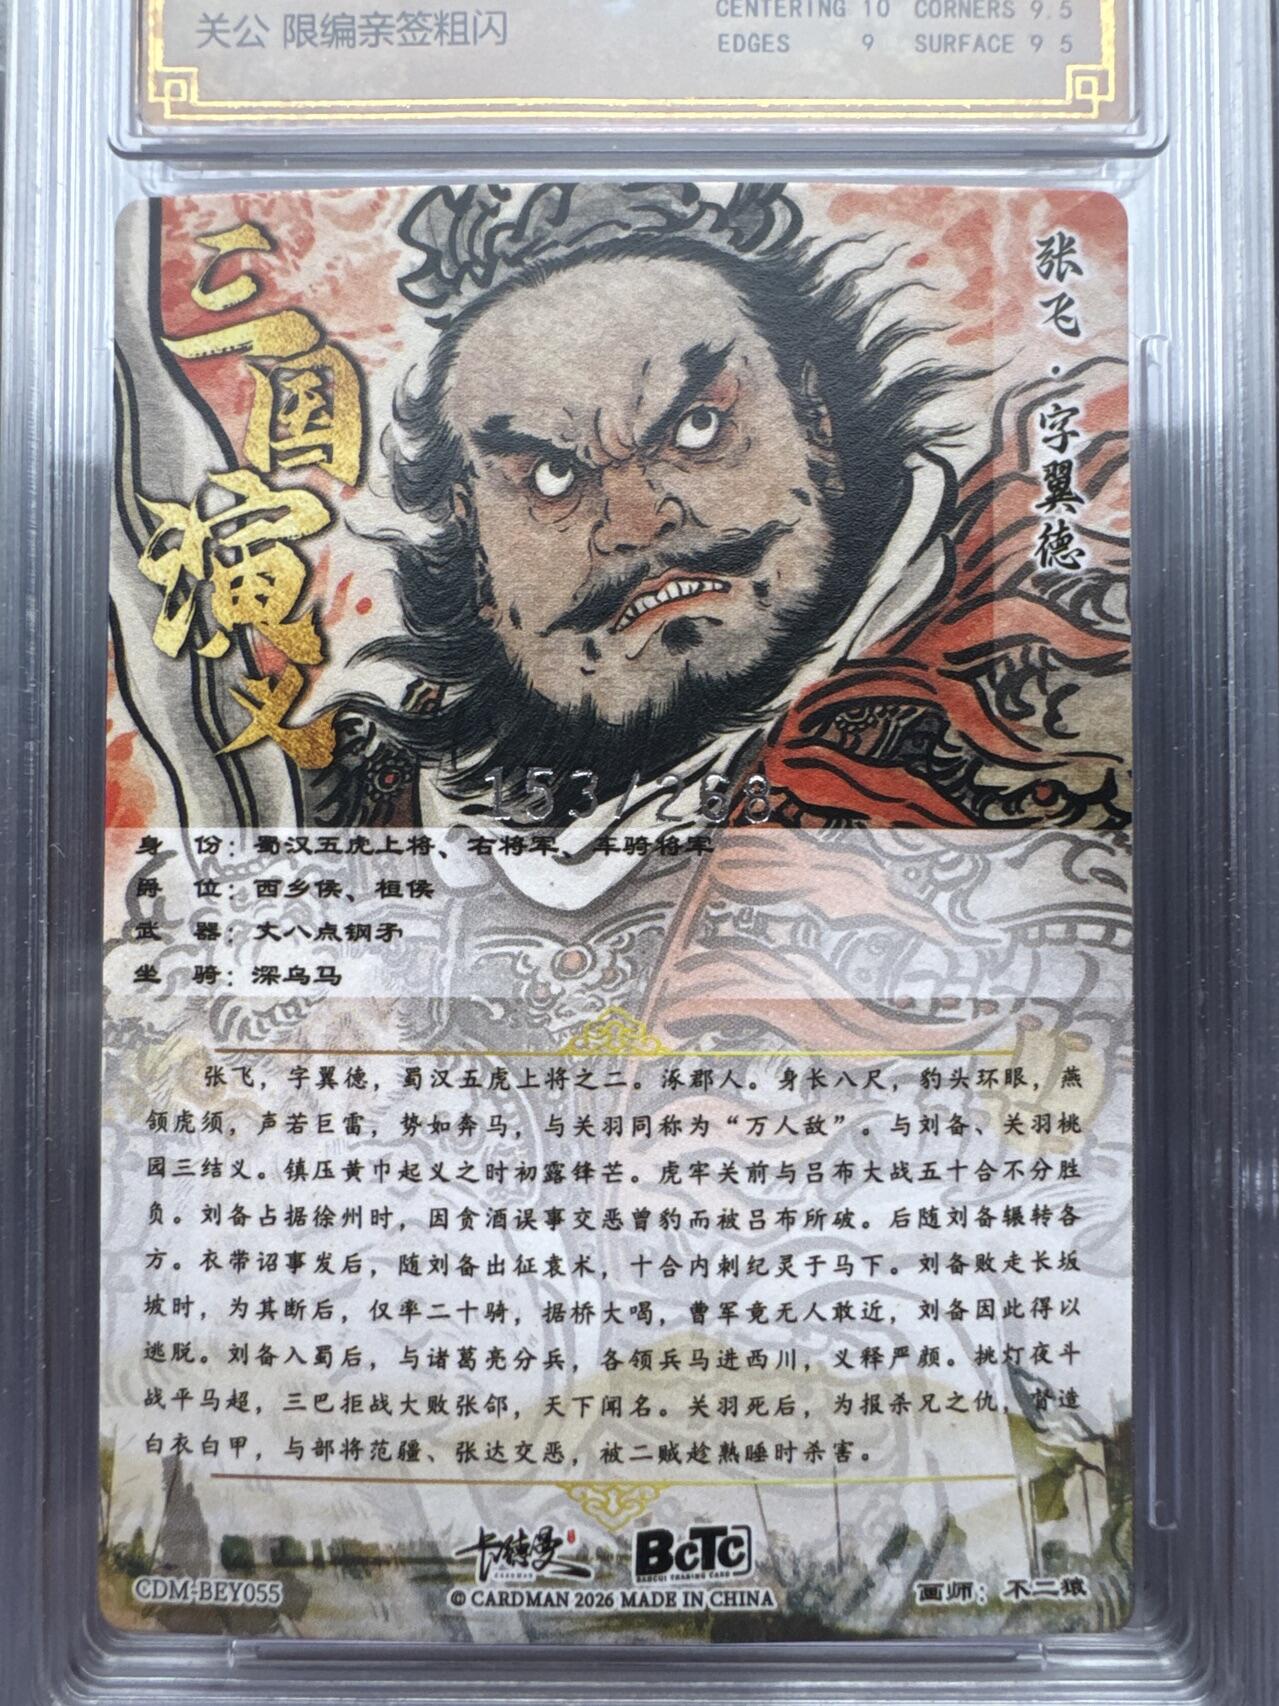 关公 限编亲签粗闪
CENTERING 10 CORNERS 9.5
EDGES 9 SURFACE 9 5
三国演义
张飞·字翼德
153/268
身 份：蜀汉五虎上将、右将军、车骑将军
爵 位：西乡侯、桓侯
武 器：丈八点钢矛
坐 骑：深乌马
张飞，字翼德，蜀汉五虎上将之二。涿郡人。身长八尺，豹头环眼，燕
颔虎须，声若巨雷，势如奔马，与关羽同称为“万人敌”。与刘备、关羽桃
园三结义。镇压黄巾起义之时初露锋芒。虎牢关前与吕布大战五十合不分胜
负。刘备占据徐州时，因贪酒误事交恶曾豹而被吕布所破。后随刘备辗转各
方。衣带诏事发后，随刘备出征袁术，十合内刺纪灵于马下。刘备败走长坂
坡时，为其断后，仅率二十骑，据桥大喝，曹军竟无人敢近，刘备因此得以
逃脱。刘备入蜀后，与诸葛亮分兵，各领兵马进西川，义释严颜。挑灯夜斗
战平马超，三巴拒战大败张郃，天下闻名。关羽死后，为报杀兄之仇，督造
白衣白甲，与部将范疆、张达交恶，被二贼趁熟睡时杀害。
卡德曼
CARDMAN
BCTC
CDM-BEY055
© CARDMAN 2026 MADE IN CHINA
画师：不二猿